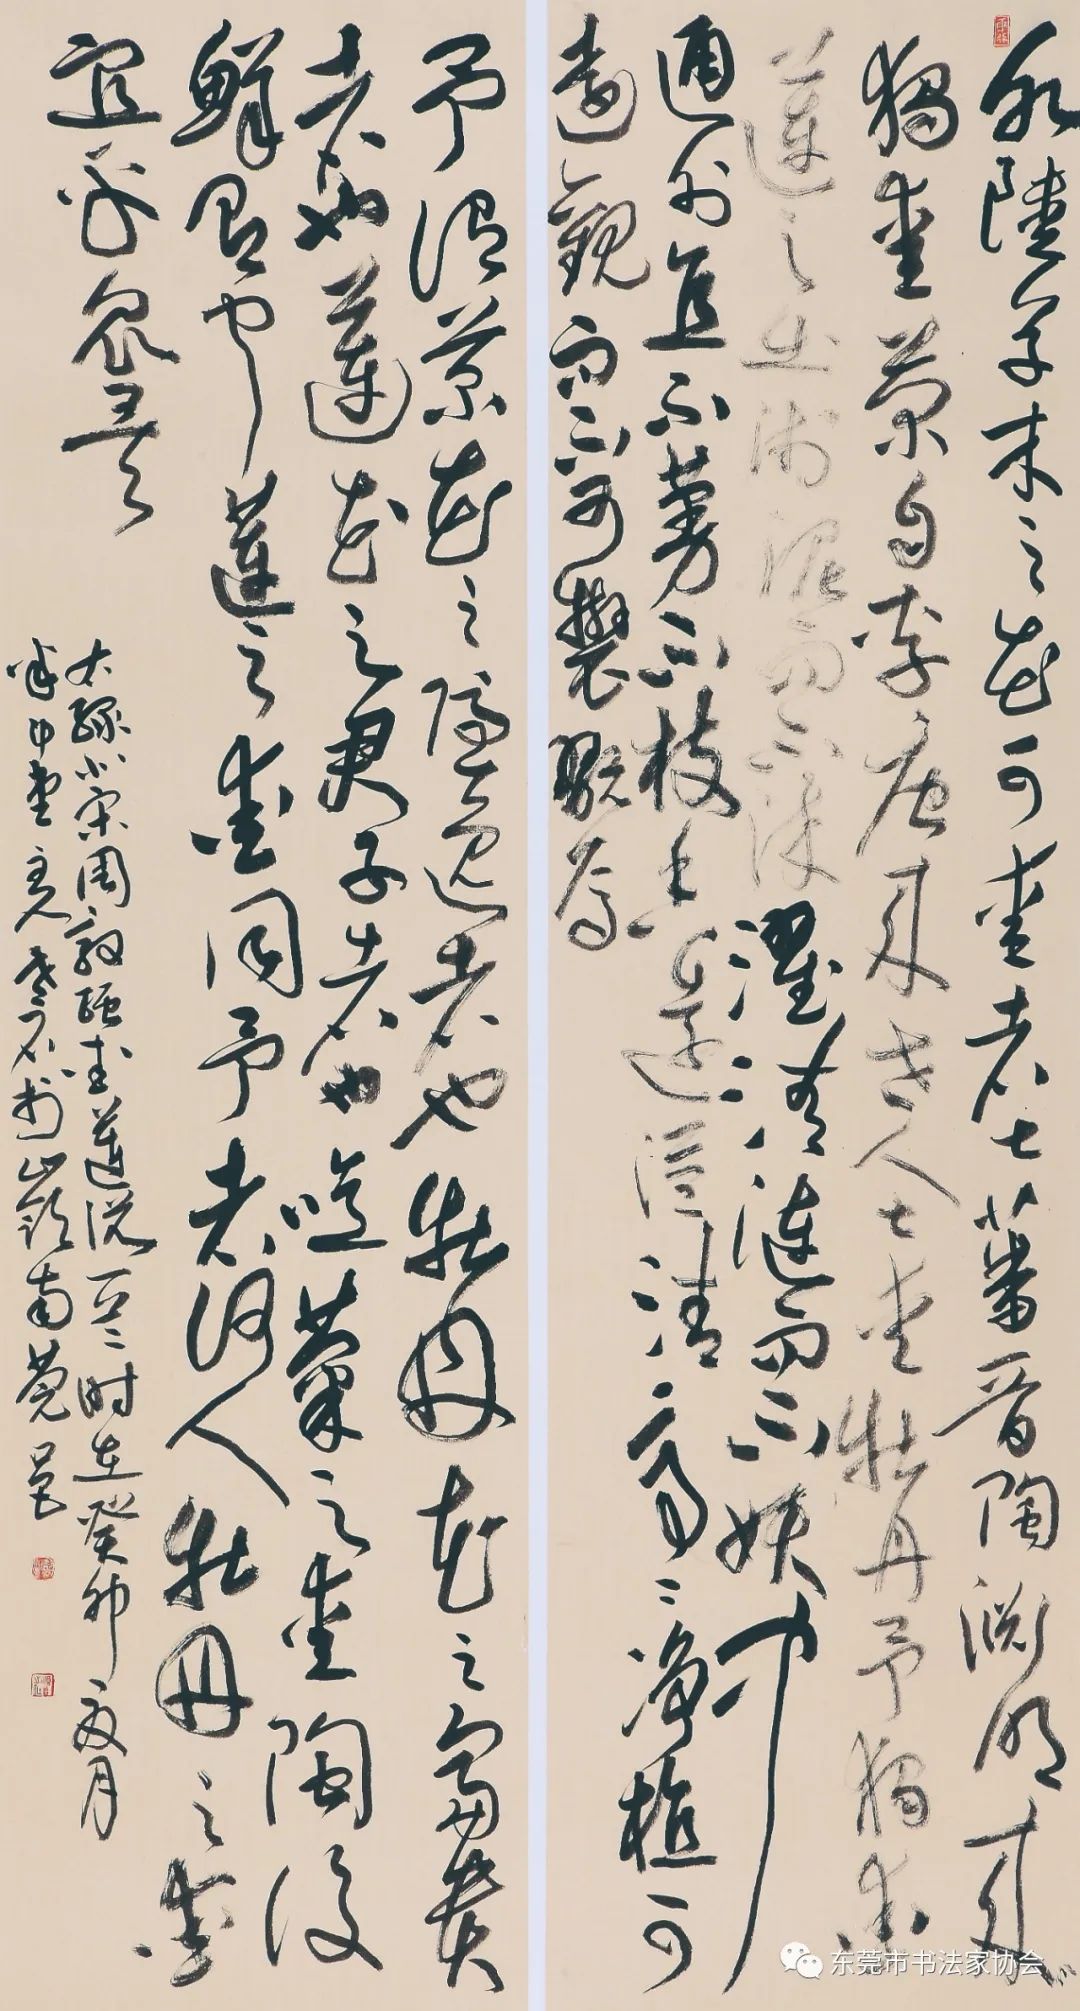 水陸草木之花可愛者甚蕃晉陶淵明
獨愛菊自李唐來世人甚愛牡丹予獨愛
蓮之出淤泥而不染濯清漣而不妖中
通外直不蔓不枝香遠溢清亭〻净植可
遠觀而不可褻翫焉
予謂菊花之隱逸者也牡丹花之富貴
者也蓮花之君子者也噫菊之愛陶後
鮮聞也蓮之愛同予者何人牡丹之愛
宜乎衆矣
北宋周敦頤愛蓮說時在癸卯夏月
堂主於嶺南莞邑
东莞市书法家协会